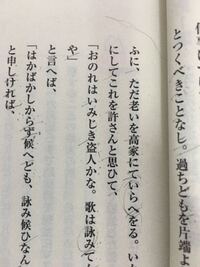 とつくべきことなし。過ちどもを片端よ
ふに、ただ老いを高家にていらへをる。い
にしてこれを許さんと思ひて、
「おのれはいみじき盗人かな。歌は詠みて
や」
と言へば、
「はかばかしからず候へども、詠み候ひなん
と申しければ、